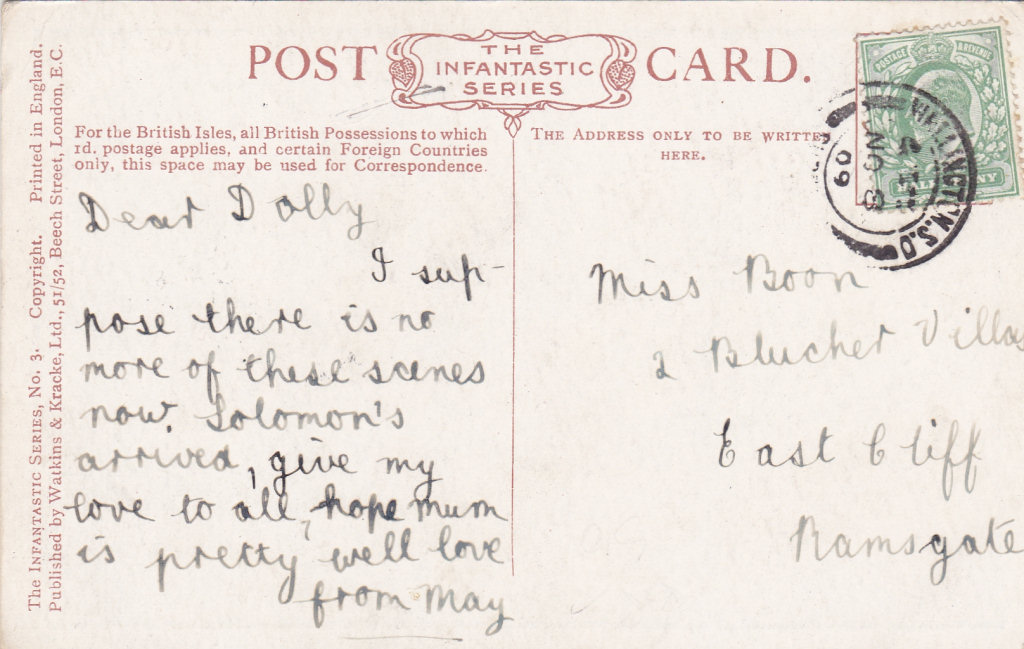 POST CARD.
THE
INFANTASTIC
SERIES
For the British Isles, all British Possessions to which
1d. postage applies, and certain Foreign Countries
only, this space may be used for Correspondence.
THE ADDRESS ONLY TO BE WRITTEN
HERE.
The INFANTASTIC SERIES, No. 3. Copyright. Printed in England.
Published by Watkins & Kracke, Ltd., 51/52, Beech Street, London, E.C.
POSTAGE & REVENUE
WELLINGTON.S.O
09
Dear Dolly
I sup-
pose there is no
more of these scenes
now. Solomon's
arrived, give my
love to all, hope mum
is pretty well love
from May
Miss Boon
2 Blucher Villas
East Cliff
Ramsgate